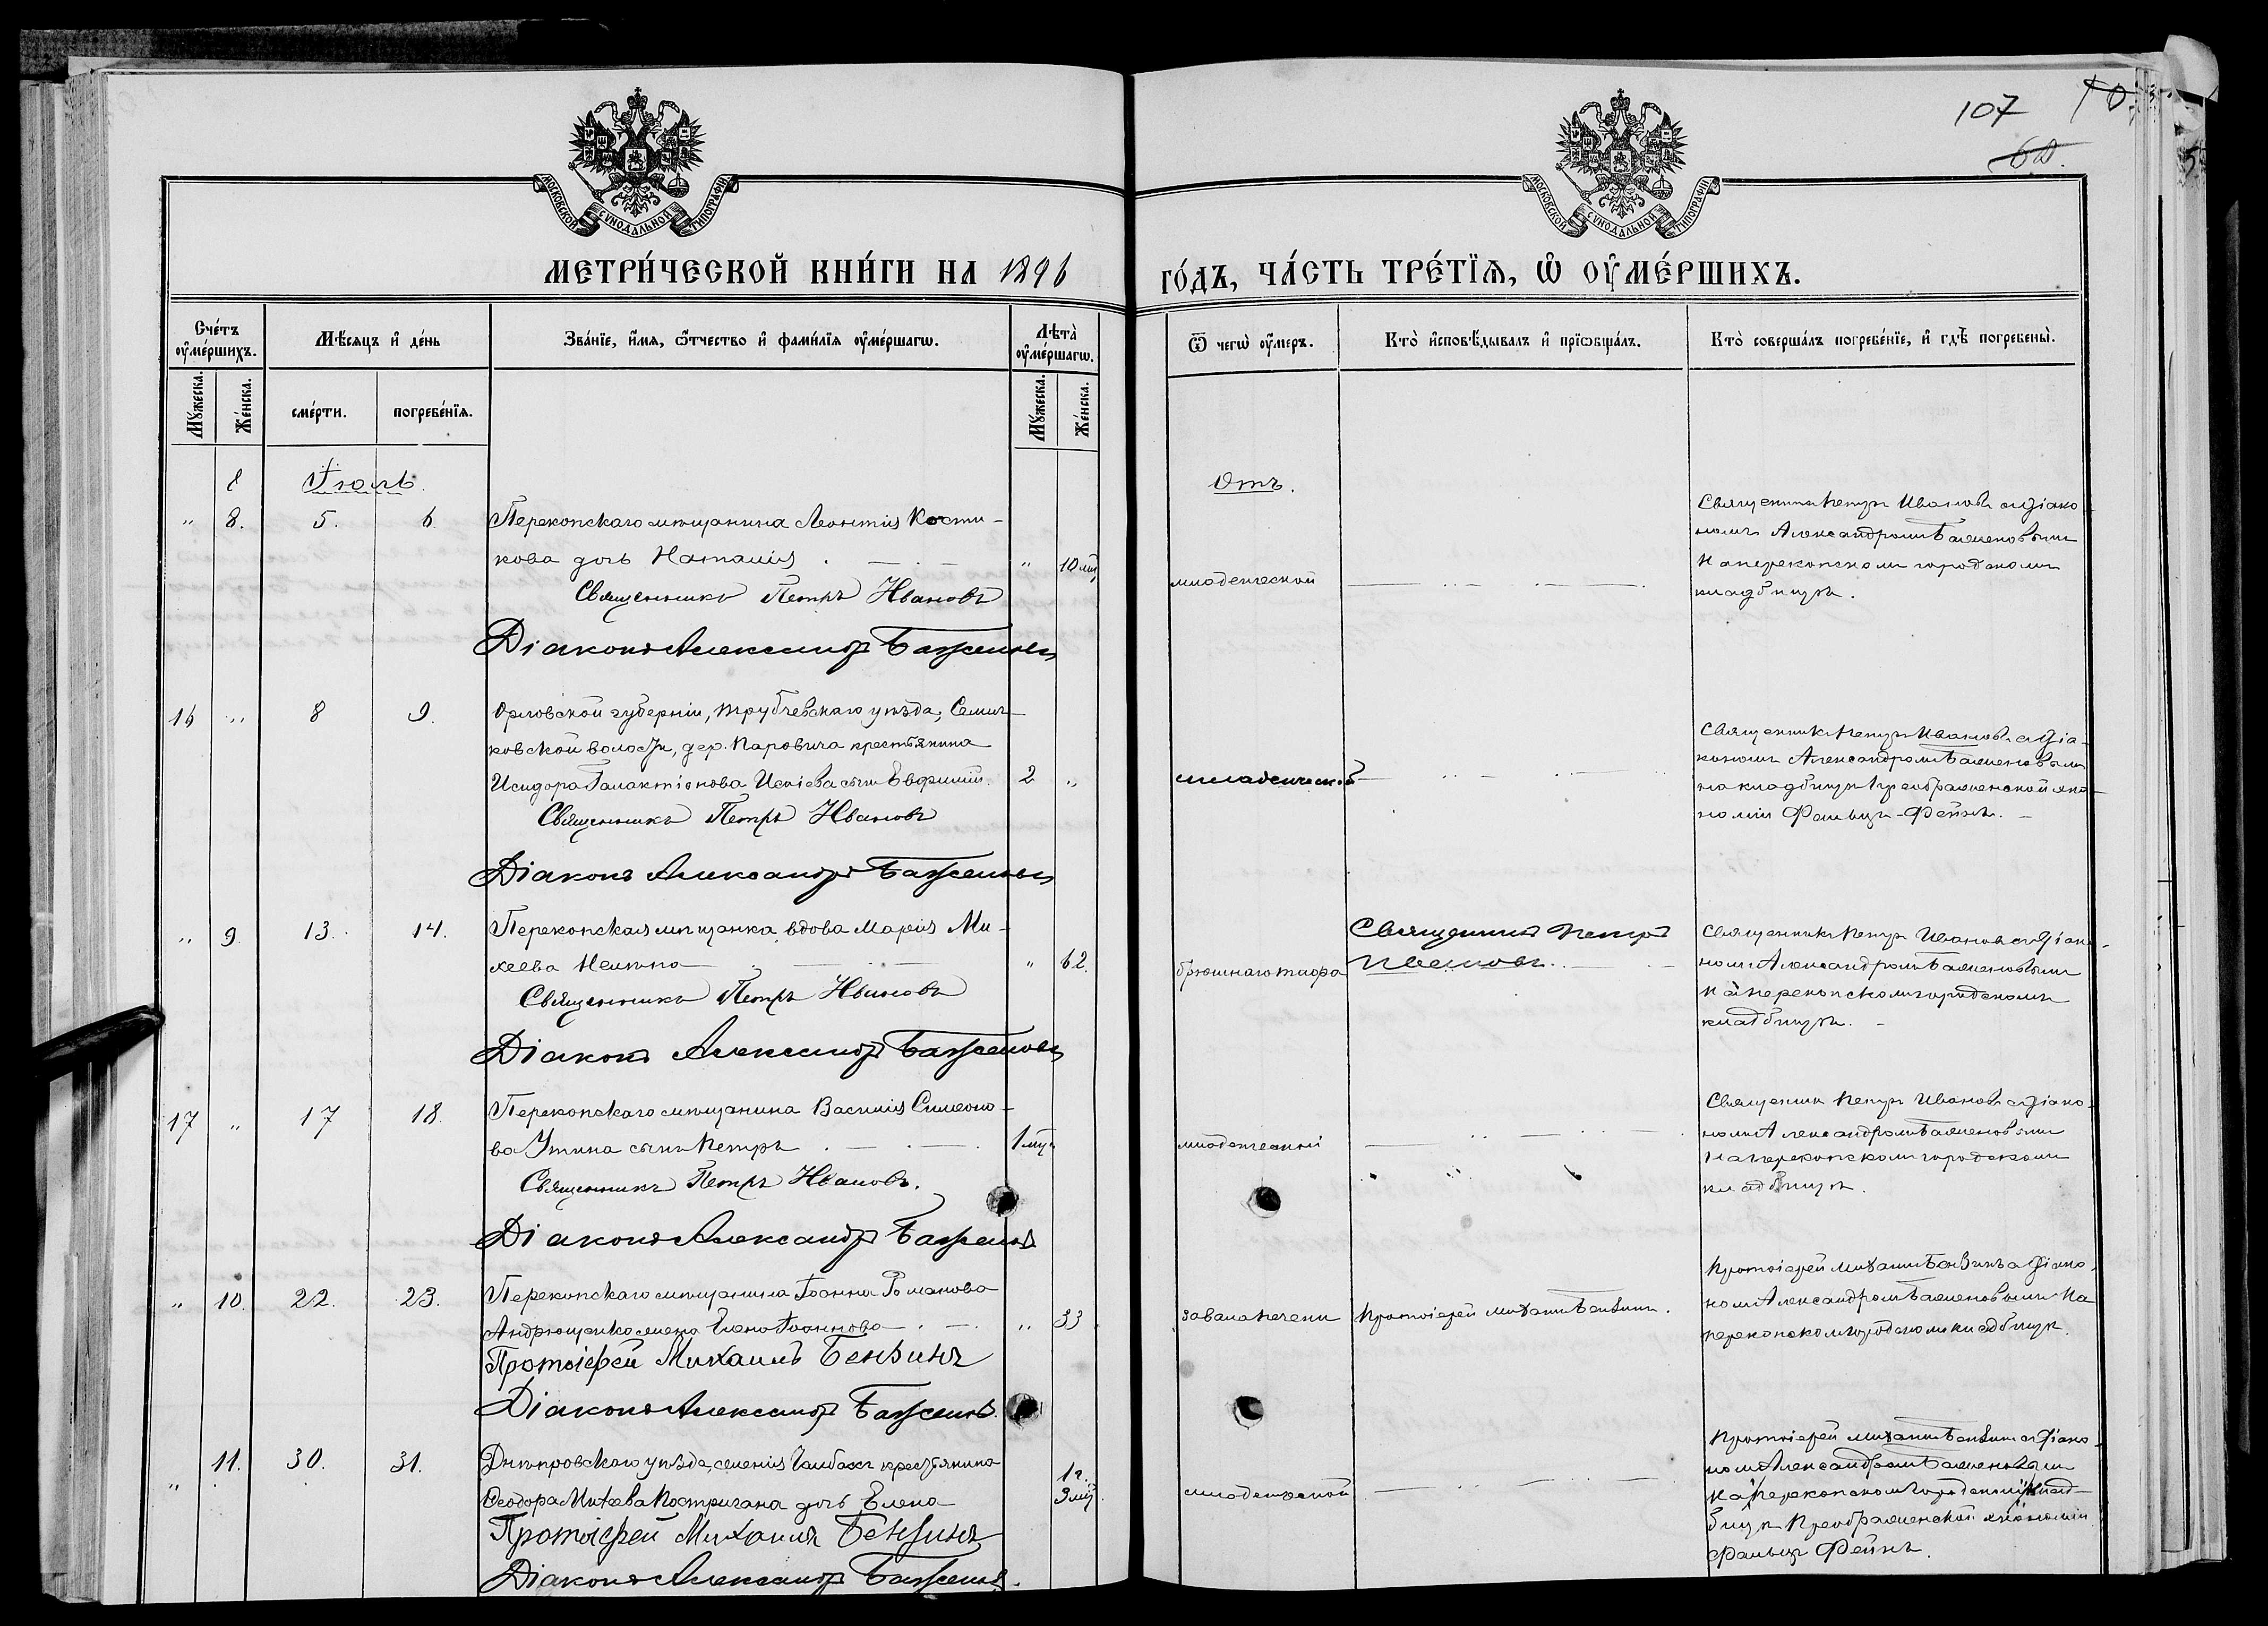 107
60.
МОСКОВСКОЙ СѴНОДАЛЬНОЙ ТИПОГРАФІИ
МОСКОВСКОЙ СѴНОДАЛЬНОЙ ТИПОГРАФІИ
МЕТРИ́ЧЕСКОЙ КНИ́ГИ НА 1896
ГО́ДЪ, ЧА́СТЬ ТРЕ́ТЇѦ, Ѡ҆ ОУ҆МЕ́РШИХЪ.
Сче́тъ оу҆ме́ршихъ.
Мѣ́сяцъ и҆ де́нь
Зва́нїе, и҆́мя, ѻ҆́тчество и҆ фами́лїя оу҆ме́ршагѡ.
Лѣта̀ оу҆ме́ршагѡ.
Мꙋ́жеска.
Же́нска.
сме́рти.
погребе́нїя.
Мꙋ́жеска.
Же́нска.
Ѿ чегѡ̀ оу҆́меръ.
Кто̀ и҆сповѣ́дывалъ и҆ прїѡбща́лъ.
Кто̀ соверша́лъ погребе́нїе, и҆ гдѣ̀ погребены̀.
8 Іюль.
Отъ.
" 8. 5. 6. Перекопскаго мѣщанина Леонтія Кости-
кова дочь Наталія " 10 мц
Священникъ Петръ Ивановъ
Діаконъ Александръ Баженовъ
младенческой
Священникъ Петръ Ивановъ съ діако-
номъ Александромъ Баженовымъ
на перекопскомъ городскомъ
кладбищѣ.
16 " 8 9. Орловской губерніи, Трубчевскаго уѣзда, Семич-
ковской волости, дер. Паровича крестьянина
Исидора Галактіонова сынъ Евфимій. 2 "
Священникъ Петръ Ивановъ
Діаконъ Александръ Баженовъ
младенческой
Священникъ Петръ Ивановъ съ діа-
кономъ Александромъ Баженовымъ
на кладбищѣ Преображенской эко-
номіи Фальцъ-Фейнъ.
" 9. 13. 14. Перекопская мѣщанка вдова Марія Ми-
хеева " 62.
Священникъ Петръ Ивановъ
Діаконъ Александръ Баженовъ
брюшнаго тифа
Священникъ Петръ
Ивановъ.
Священникъ Петръ Ивановъ съ діако-
номъ Александромъ Баженовымъ
на перекопскомъ городскомъ
кладбищѣ.
17 " 17 18. Перекопскаго мѣщанина Василія Симеоно-
ва Утина сынъ Петръ 1 мц
Священникъ Петръ Ивановъ.
Діаконъ Александръ Баженовъ
младенческой
Священникъ Петръ Ивановъ съ діако-
номъ Александромъ Баженовымъ
на перекопскомъ городскомъ
кладбищѣ.
" 10. 22. 23. Перекопскаго мѣщанина Іоанна Романова
Андрющенко жена Елена Іоаннова " 33
Протоіерей Михаилъ Бензинъ
Діаконъ Александръ Баженовъ.
завала печени
Протоіерей Михаилъ Бензинъ.
Протоіерей Михаилъ Бензинъ съ діако-
номъ Александромъ Баженовымъ на
перекопскомъ городскомъ кладбищѣ.
" 11. 30. 31. Днѣпровскаго уѣзда, селенія Чалбасъ крестьянина
Ѳеодора Михеева Костригана дочь Елена 1 г. 3 мц
Протоіерей Михаилъ Бензинъ
Діаконъ Александръ Баженовъ.
младенческой
Протоіерей Михаилъ Бензинъ съ діако-
номъ Александромъ Баженовымъ
на перекопскомъ городскомъ клад-
бищѣ Преображенской экономіи
Фальцъ Фейнъ.